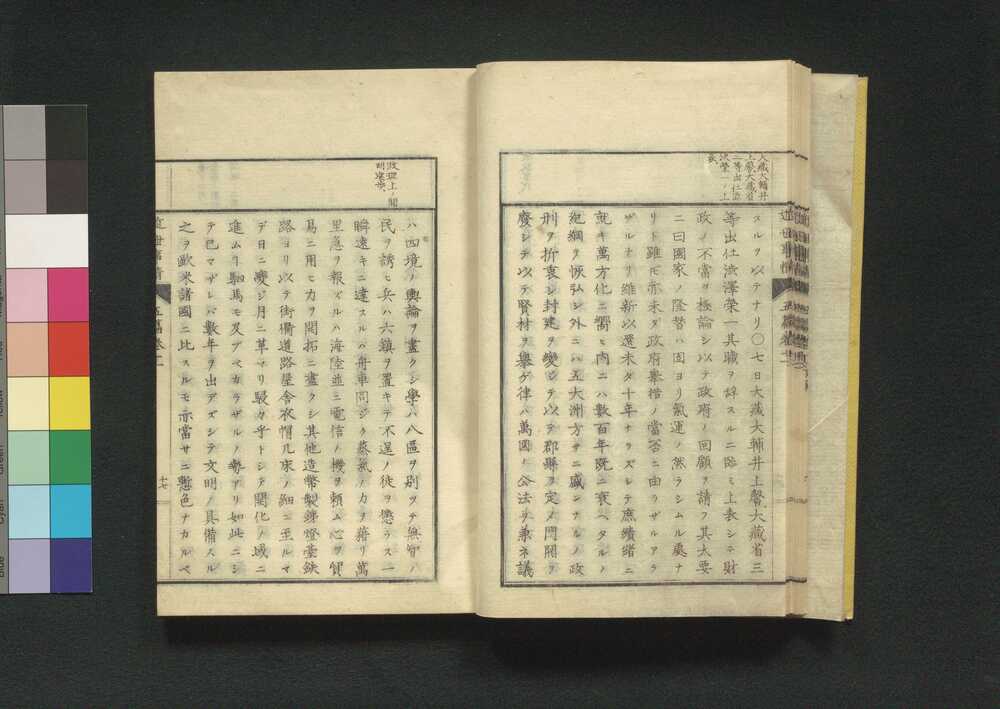 大藏大輔井
上馨大藏省
三等出仕澁
澤榮一ノ上
表
スルヲ以テナリ〇七日大藏大輔井上馨大藏省三
等出仕澁澤榮一其職ヲ辭スルニ臨ミ上表シテ財
政ノ不當ヲ極論シ以テ政府ノ回顧ヲ請フ其大要
ニ曰國家ノ隆替ハ固ヨリ氣運ノ然ラシムル處ナ
リト雖モ亦未ダ政府擧措ノ當否ニ由ラザルアラ
ザルナリ維新以還未ダ十年ナラズシテ庶績緒ニ
就キ萬方化ニ嚮ヒ内ニハ數百年既ニ衰ヘタルノ
紀綱ヲ恢弘シ外ニハ五大洲方サニ盛ンナルノ政
刑ヲ折衷シ封建ヲ變シテ以テ郡縣ヲ定メ門閥ヲ
廢シテ以テ賢材ヲ擧ゲ律ハ萬國ノ公法ヲ兼ネ議
政理上ノ開
明
ハ四境ノ輿論ヲ盡クシ學ハ八區ヲ別ツテ無智ノ
民ヲ誘ヒ兵ハ六鎮ヲ置キテ不逞ノ徒ヲ懲ラス一
瞬遠キニ達スルハ舟車同ジク蒸氣ノ力ヲ藉リ萬
里急ヲ報ズルハ海陸並ニ電信ノ機ヲ頼ム心ヲ貿
易ニ用ヒ力ヲ開拓ニ盡クシ其他造幣製鐵燈臺鉄
路ヨリ以テ街衢道路屋舎衣帽几床ノ細ニ至ルマ
デ日ニ變ジ月ニ革マリ駸カ乎トシテ開化ノ域ニ
進ムリ駟馬モ及ブベカラザルノ勢アリ如此ニシ
テ已マザレバ數年ヲ出デズシテ文明ノ具備スル
之ヲ歐米諸國ニ比スルモ亦當サニ慙色ナカルベ
十七